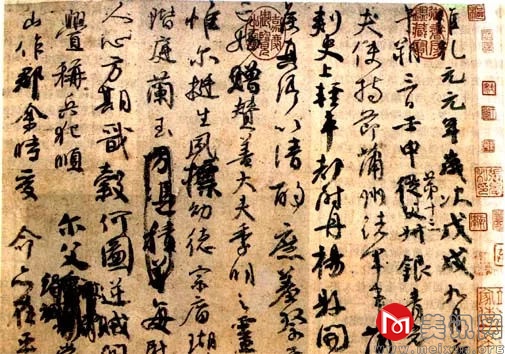 維乾元元年歲次戊戌九
午朔三日壬申第十三從父叔銀青
夫使持節蒲州諸軍事蒲
刺史上輕車都尉丹楊縣開
侯真卿以清酌庶羞祭
亡姪贈贊善大夫季明之靈
惟爾挺生夙標幼德宗廟瑚
階庭蘭玉方憑積善每慰
人心方期戩穀何圖逆賊間
釁稱兵犯順 爾父
山作郡余時受命亦在平
嘉慶御覽之寶